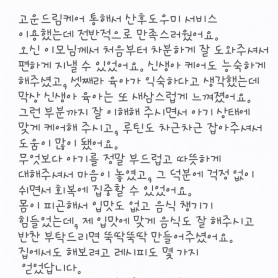 고운드림케어 통해서 산후도우미 서비스
이용했는데 전반적으로 만족스러웠어요.
오신 이모님께서 처음부터 차분하게 잘 도와주셔서
편하게 지낼 수 있었어요. 신생아 케어도 능숙하게
해주셨고, 셋째라 육아가 익숙하다고 생각했는데
막상 신생아 육아는 또 새삼스럽게 느껴졌어요.
그런 부분까지 잘 이해해 주시면서 아기 상태에
맞게 케어해 주시고, 루틴도 차근차근 잡아주셔서
도움이 많이 됐어요.
무엇보다 아기를 정말 부드럽고 따뜻하게
대해주셔서 마음이 놓였고, 그 덕분에 걱정 없이
쉬면서 회복에 집중할 수 있었어요.
몸이 피곤해서 입맛도 없고 음식 챙기기
힘들었는데, 제 입맛에 맞게 음식도 잘 해주시고
반찬 부탁드리면 뚝딱뚝딱 만들어주셨어요.
집에서도 해보려고 레시피도 몇 가지
얻었답니다.